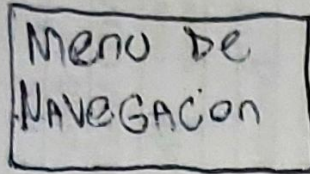 Menu De
NAVeGACion